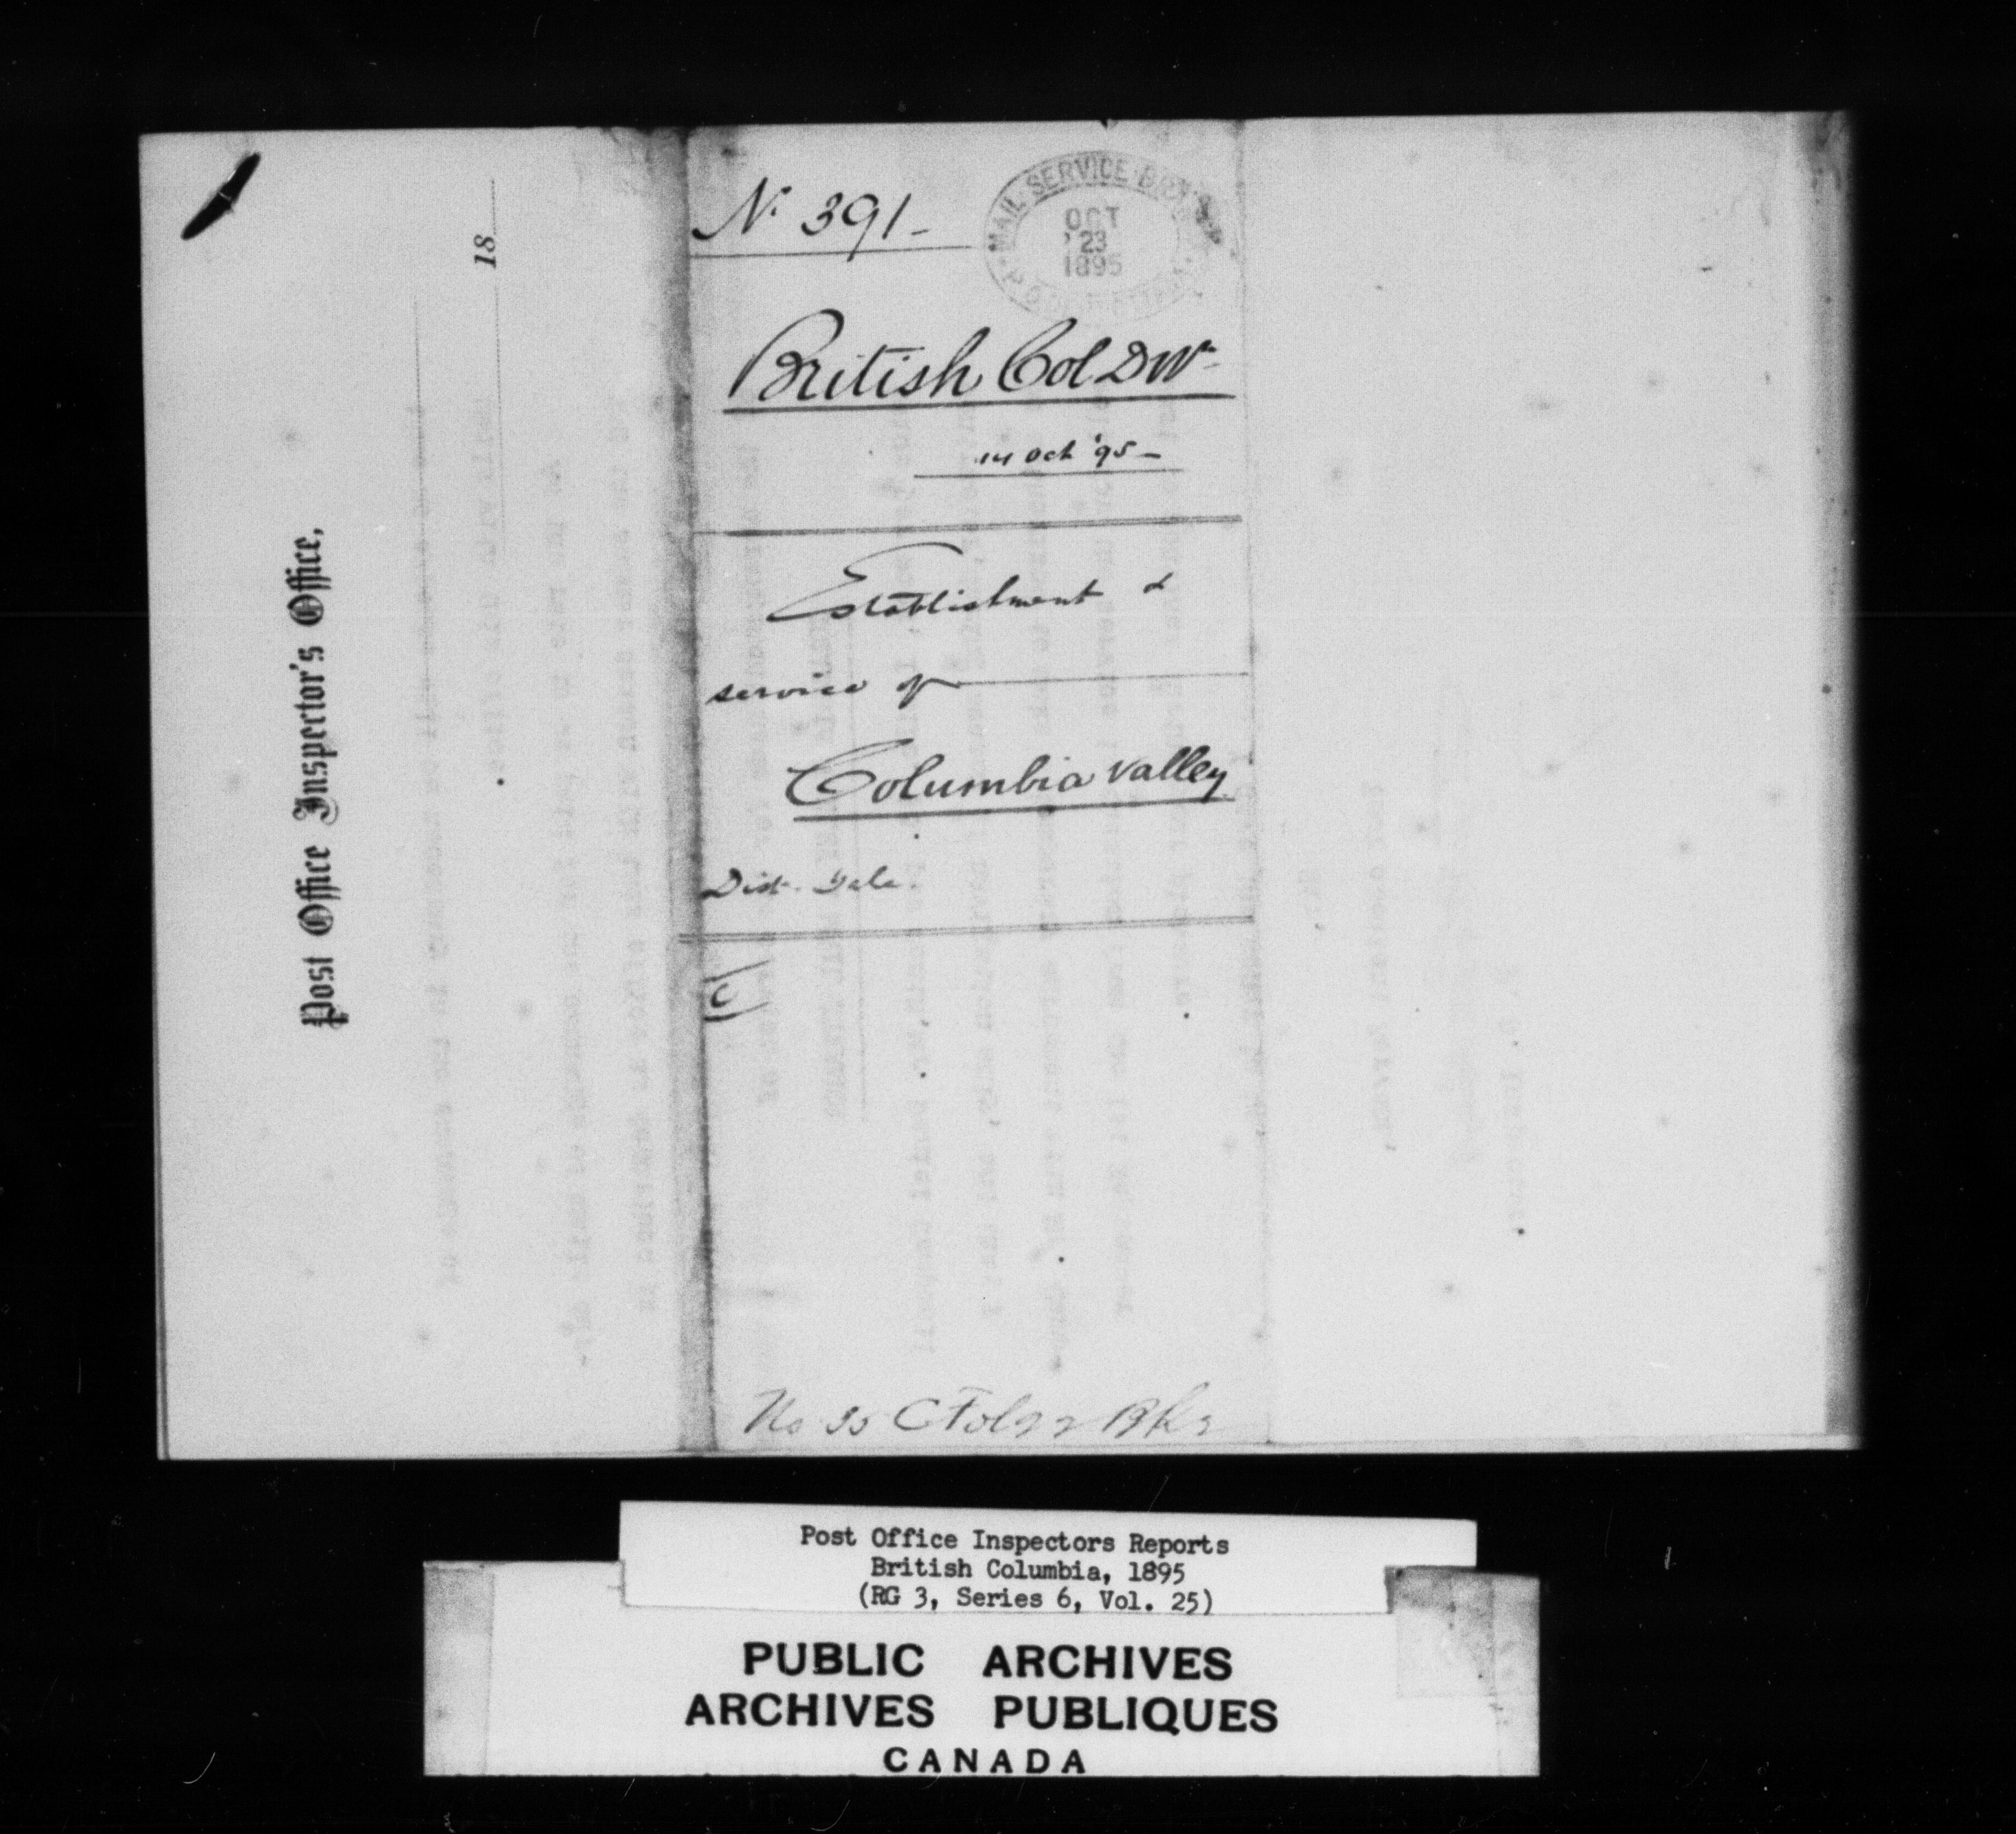 Post Office Inspector's Office,
18
No 391-
MAIL SERVICE
OCT
23
1895
British Col Dn
14 Oct '95-
Establishment &
service of
Columbia Valley
Dist. Yale.
C
No 35 C Fol 92 Bk 2
Post Office Inspectors Reports
British Columbia, 1895
(RG 3, Series 6, Vol. 25)
PUBLIC ARCHIVES
ARCHIVES PUBLIQUES
CANADA